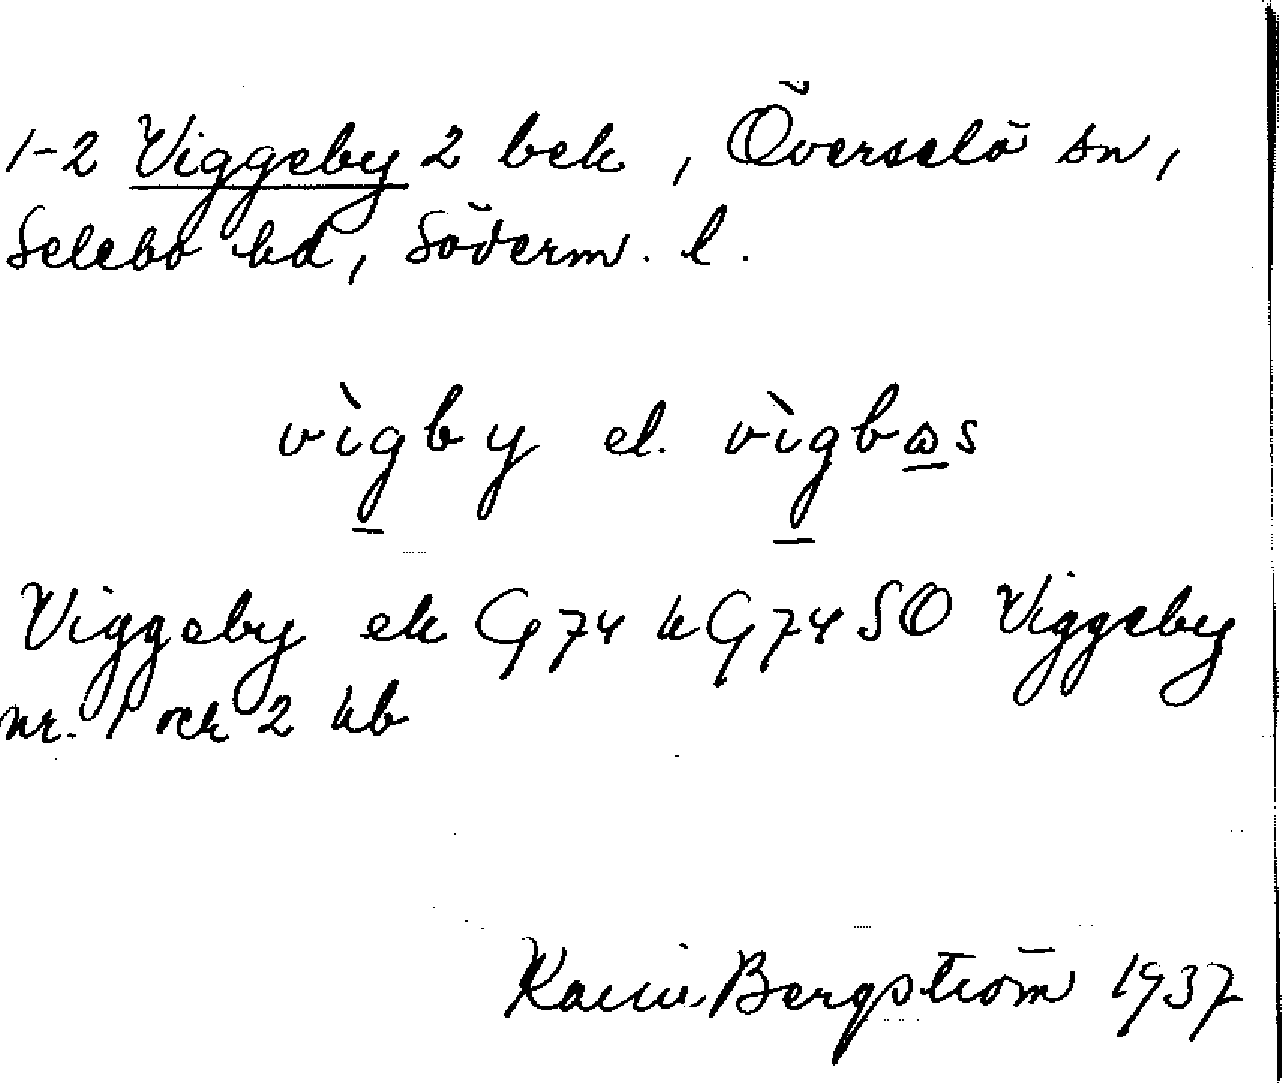 1-2 Viggeby 2 bek, Överselö sn,
Selebo hd, Söderm. l.
vìgby el. vìgbωs
Viggeby ek G 74 k G 74 SO Viggeby
nr. 1 och 2 kb
Karin Bergström 1937